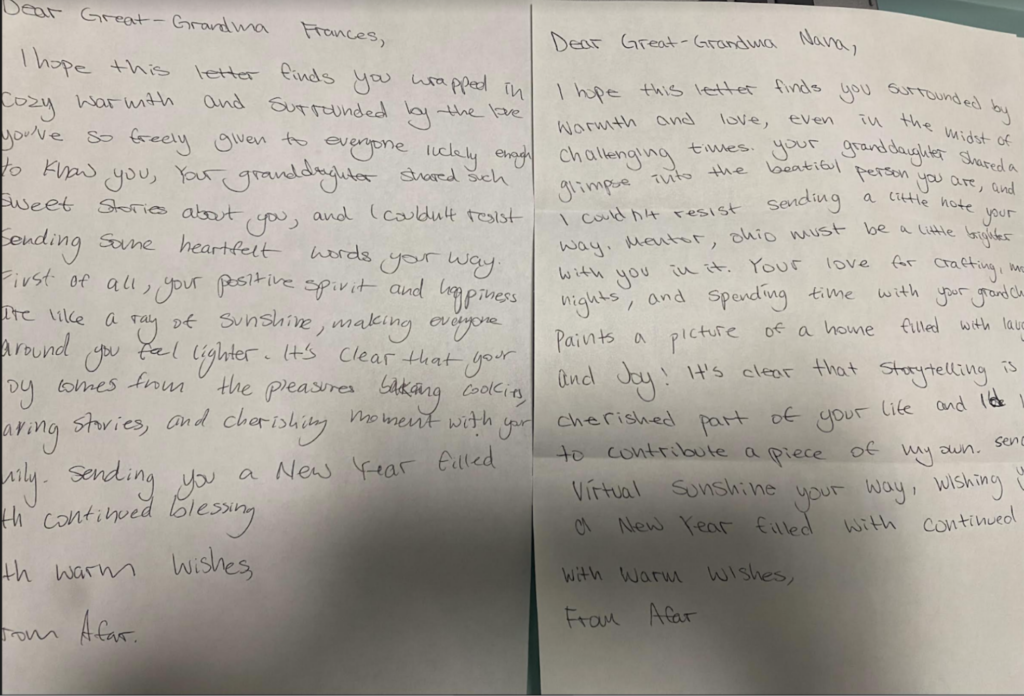 Dear Great-Grandma Frances,
I hope this letter finds you wrapped in
cozy warmth and surrounded by the love
you've so freely given to everyone luckely enough
to know you, Your granddaughter shared such
sweet stories about you, and I couldn't resist
sending some heartfelt words your way.
First of all, your positive spirit and happiness
are like a ray of sunshine, making everyone
around you feel lighter. It's clear that your
oy comes from the pleasures baking cookies,
aring stories, and cherishing moment with your
mily. Sending you a New Year filled
th continued blessing
th warm wishes,
rom Afar.
Dear Great-Grandma Nana,
I hope this letter finds you surrounded by
warmth and love, even in the midst of
challenging times. your granddaughter shared a
glimpse into the beatiful person you are, and
I couldn't resist sending a little note your
way. Mentor, ohio must be a little brighter
with you in it. Your love for crafting, mo
nights, and spending time with your grandch
Paints a picture of a home filled with laug
and Joy! It's clear that storytelling is
cherished part of your life and
to contribute a piece of my own. send
Virtual sunshine your way, wishing y
a New Year filled with continued
with warm wishes,
From Afar